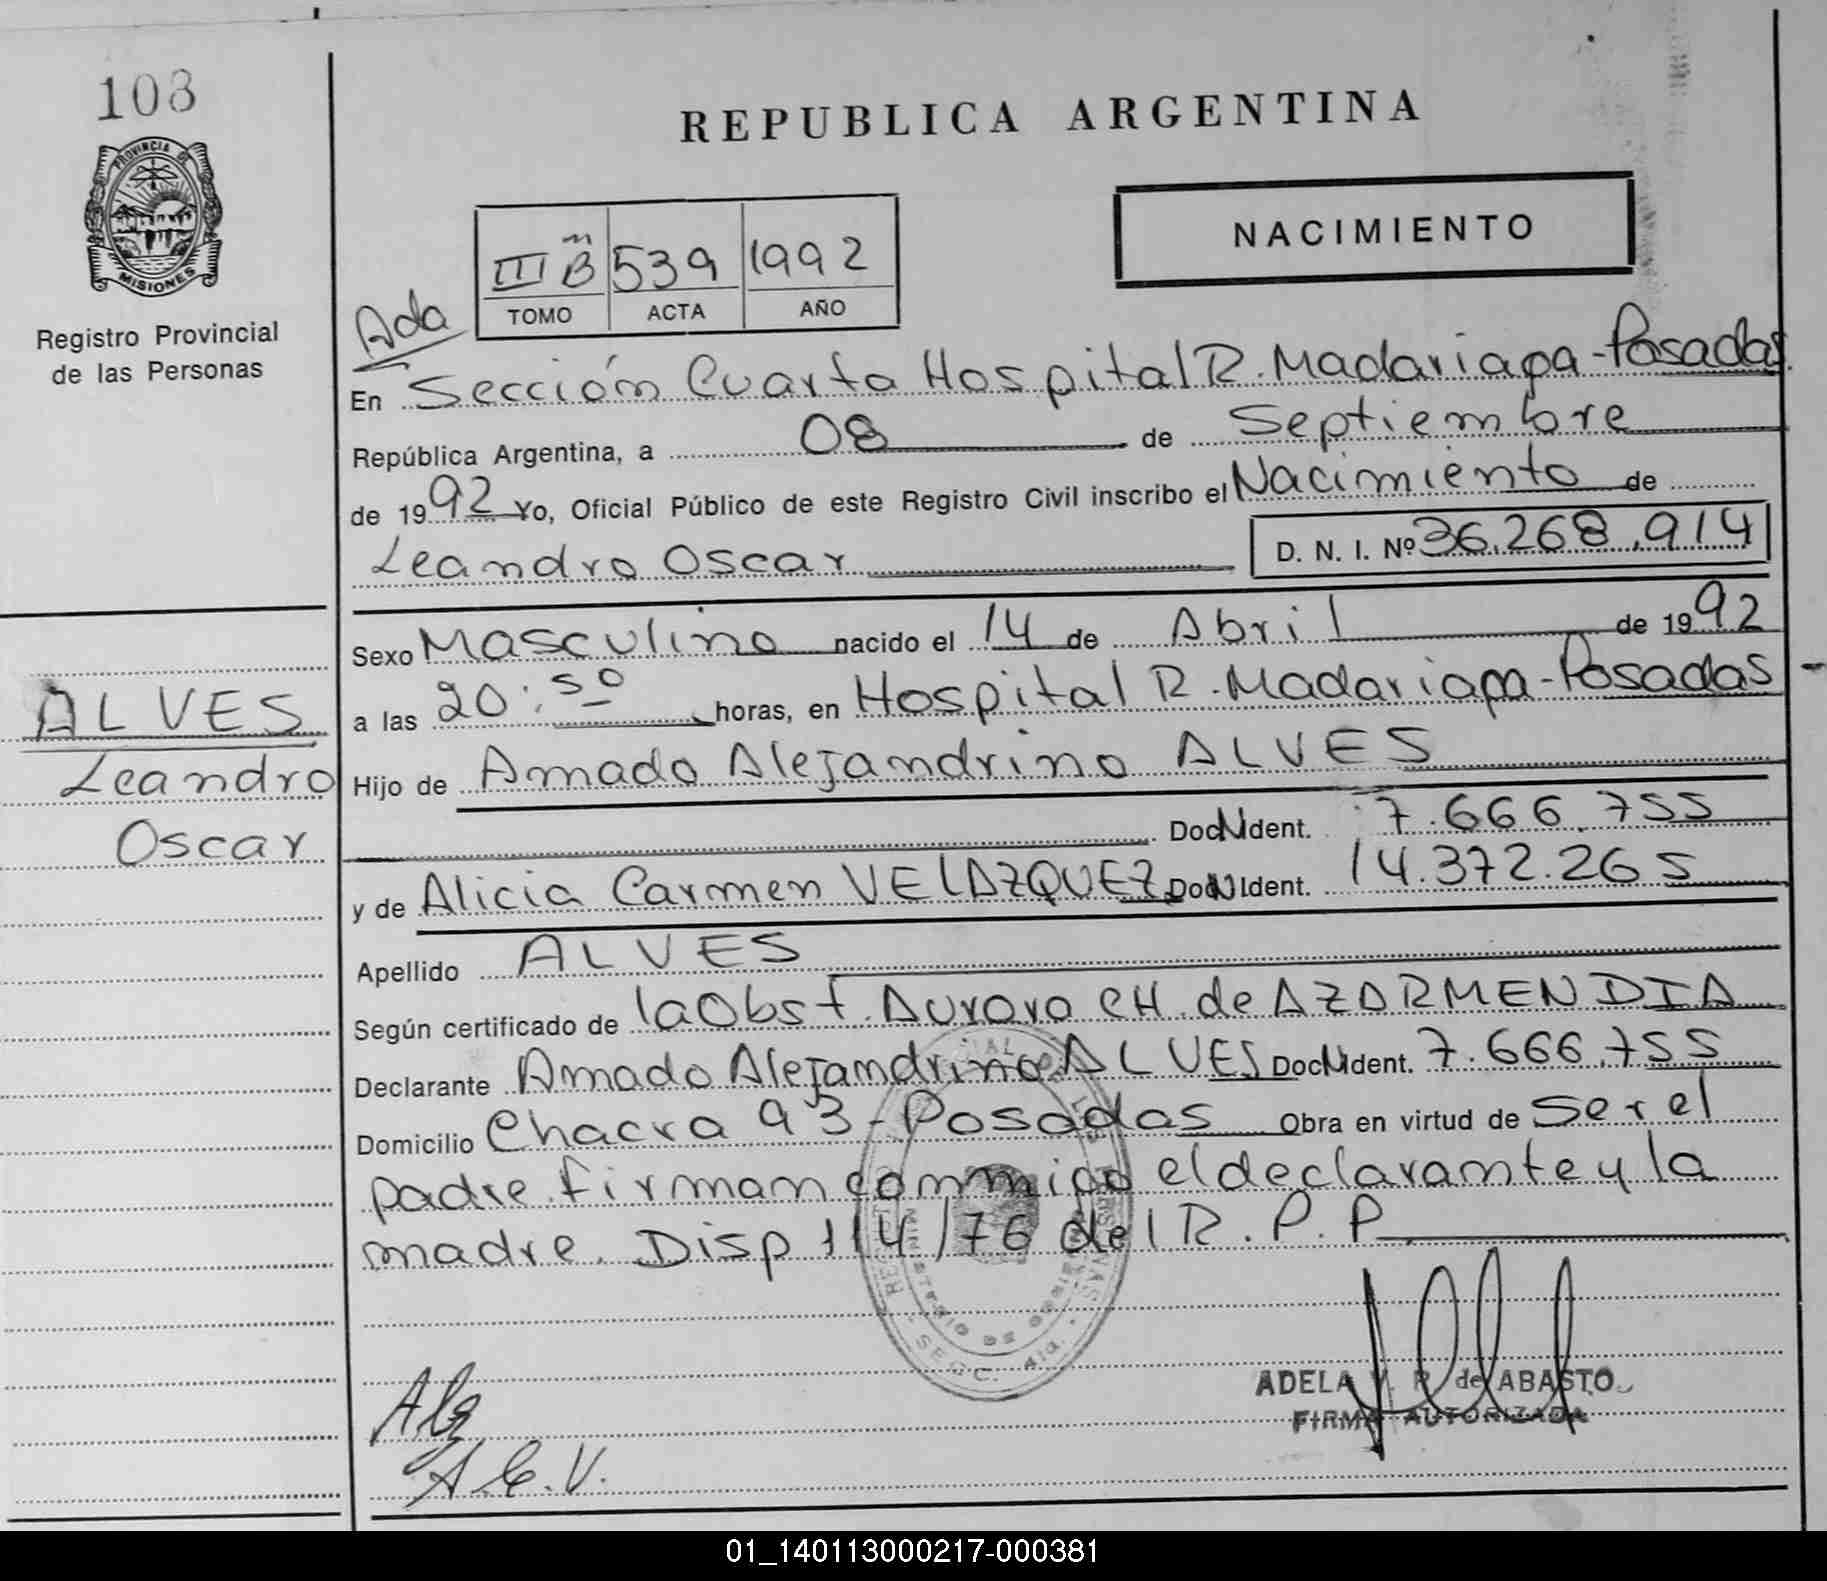 103
PROVINCIA DE
MISIONES
Registro Provincial
de las Personas
REPUBLICA ARGENTINA
NACIMIENTO
III B m 539 1992
TOMO ACTA AÑO
Ada
En Sección Cuarta Hospital R. Madariaga - Posadas
República Argentina, a 08 de Septiembre
de 1992 Yo, Oficial Público de este Registro Civil inscribo el Nacimiento de
Leandro Oscar D. N. I. Nº 36.268.914
Sexo Masculino nacido el 14 de Abril de 1992
a las 20:50 horas, en Hospital R. Madariaga - Posadas -
Hijo de Amado Alejandrino ALVES
Doc N Ident. 7.666.755
y de Alicia Carmen VELAZQUEZ Doc N Ident. 14.372.265
Apellido ALVES
Según certificado de la Obst. Aurora CH. de AZARMENDIA
Declarante Amado Alejandrino ALVES Doc N Ident. 7.666.755
Domicilio Chacra 93 - Posadas Obra en virtud de Ser el
padre. firman conmigo el declarante y la
madre. Disp 114/76 del R. P. P.
ALVES
Leandro
Oscar
SECC. 4ta.
A.C.V.
ADELA V. R. de ABASTO
FIRMA AUTORIZADA
01_140113000217-000381